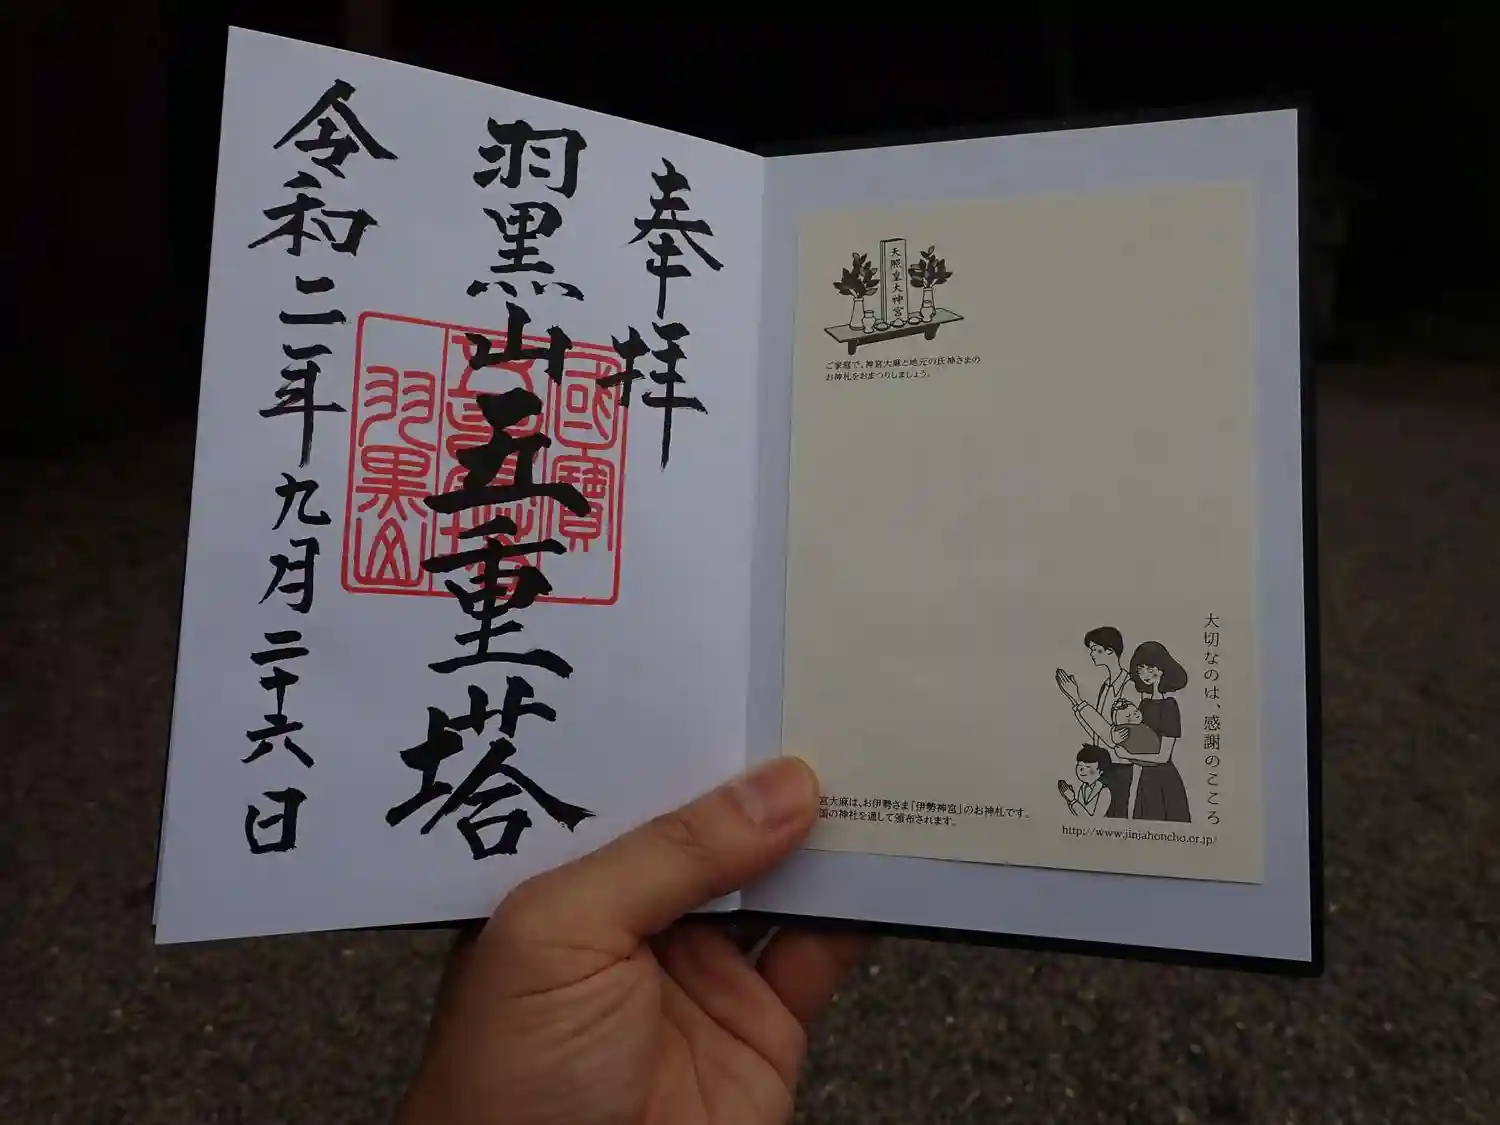 奉拝
羽黒山五重塔
令和二年九月二十六日
國寶
五重塔
羽黒山
天照皇大神宮
ご家庭で、神宮大麻と地元の氏神さまの
お神札をおまつりしましょう。
大切なのは、感謝のこころ
宮大麻は、お伊勢さま「伊勢神宮」のお神札です。
国の神社を通して頒布されます。
http://www.jinjahoncho.or.jp/